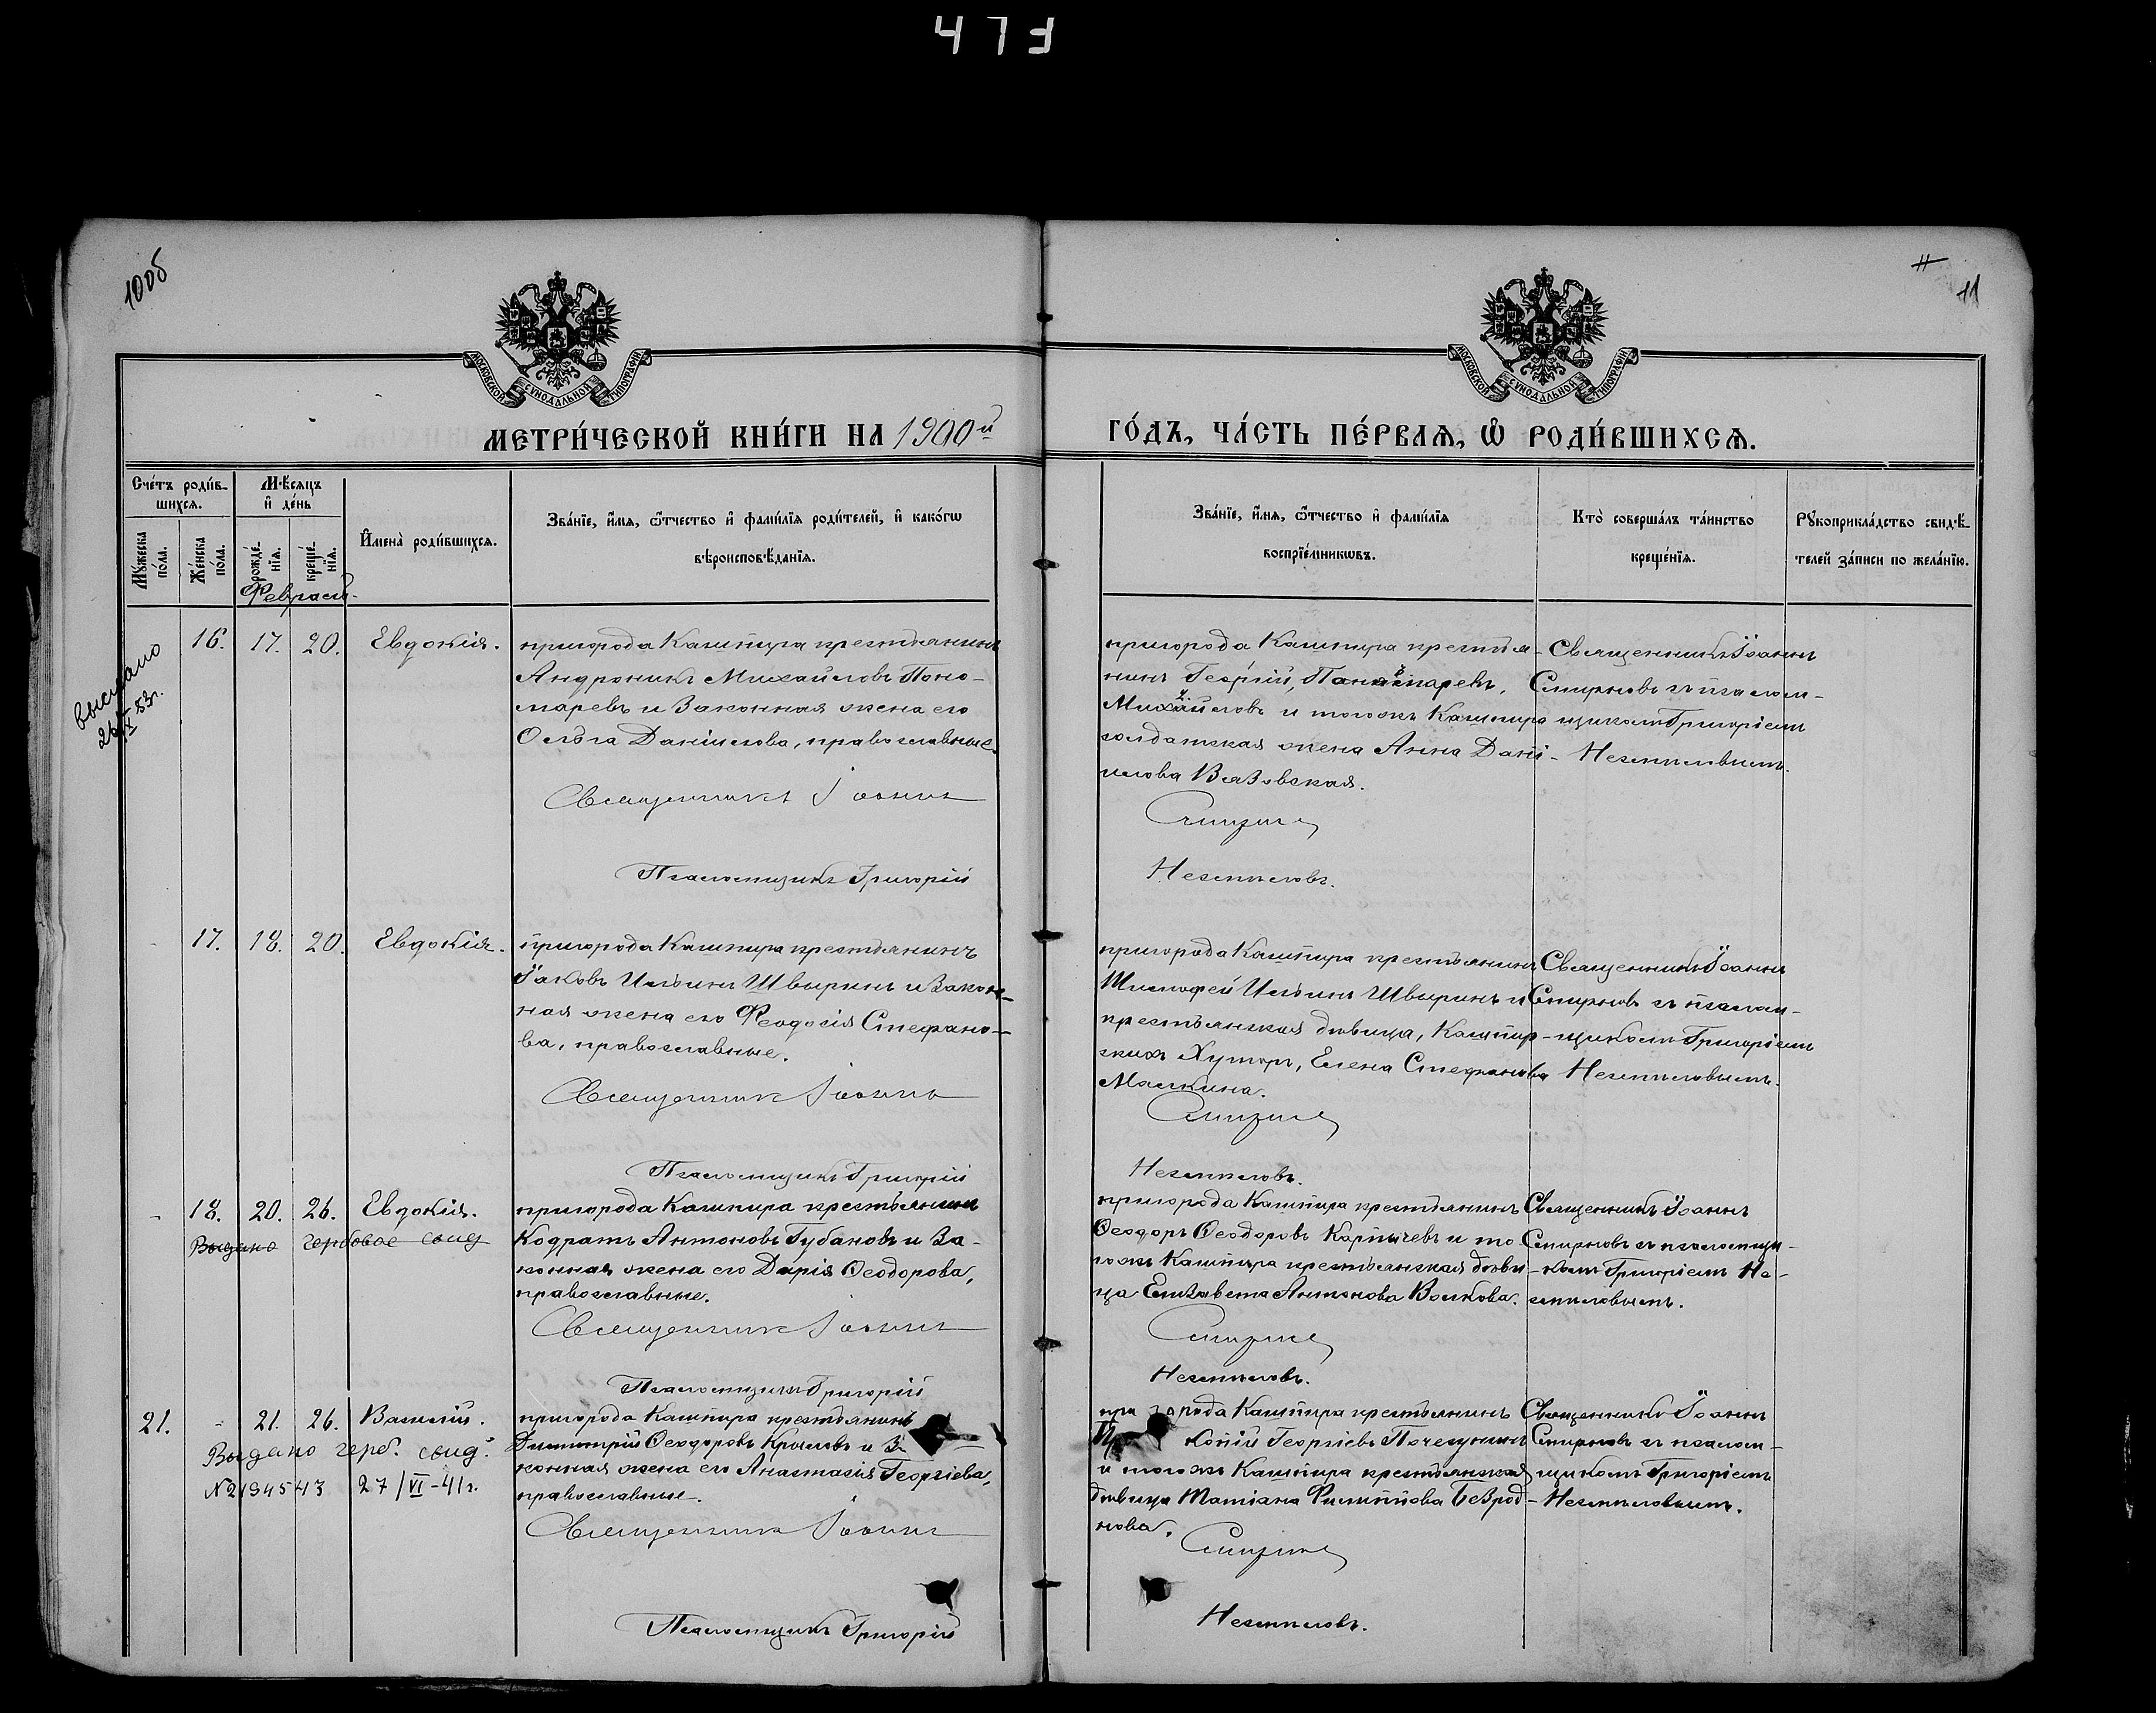 47F
100б
11
11
МОСКОВСКОЙ СѴНОДАЛЬНОЙ ТИПОГРАФІИ
МОСКОВСКОЙ СѴНОДАЛЬНОЙ ТИПОГРАФІИ
МЕТРИ́ЧЕСКОЙ КНИ́ГИ НА 1900й
ГО́ДЪ, ЧА́СТЬ ПЕ́РВАѦ, Ѽ РОДИ́ВШИХСѦ.
Сче́тъ роди́в-
шихсѧ.
Мѣ́сѧцъ
и҆ де́нь
Мꙋ́жеска
по́ла.
Же́нска
по́ла.
рожде́-
нїѧ.
креще́-
нїѧ.
И҆мена̀ роди́вшихсѧ.
Зва́нїе, и҆́мѧ, ѻ҆́тчество и҆ фами́лїѧ роди́телей, и҆ како́гѡ
вѣроисповѣ́данїѧ.
Зва́нїе, и҆́мѧ, ѻ҆́тчество и҆ фами́лїѧ
воспрїе́мникѡвъ.
Кто̀ соверша́лъ та́инство
креще́нїѧ.
Рꙋкоприкла́дство свидѣ́-
телей за́писи по жела́нїю.
Февраль.
выслано
26/IX 53г.
16. 17. 20. Евдокія.
пригорода Кашпира крестьянинъ
Андроникъ Михайловъ Поно-
маревъ и законная жена его
Ольга Даніилова, православные.
Священникъ Іоаннъ
Псаломщикъ Григорій
пригорода Кашпира крестья-
нинъ Георгій, Пономаревъ,
Михайловъ и тогожъ Кашпира
солдатская жена Анна Дані-
илова Вязовская.
Смирновъ
Неземиловъ.
Священникъ Іоаннъ
Смирновъ съ псалом-
щикомъ Григоріемъ
17. 18. 20. Евдокія.
пригорода Кашпира крестьянинъ
Іаковъ Ильинъ Швыринъ и закон-
ная жена его Феодосія Стефано-
ва, православные.
Священникъ Іоаннъ
Псаломщикъ Григорій
пригорода Кашпира крестьянинъ
Тимофей Ильинъ Швыринъ и
крестьянская дѣвица, Кашпир-
скихъ Хуторъ, Елена Стефанова
Малкина.
Смирновъ
Священникъ Іоаннъ
Смирновъ съ псалом-
щикомъ Григоріемъ
18. 20. 26. Евдокія.
Выдано гербовое свид
пригорода Кашпира крестьянинъ
Кодратъ Антоновъ Губановъ и за-
конная жена его Дарія Ѳеодорова,
православные.
Священникъ Іоаннъ
Псаломщикъ Григорій
пригорода Кашпира крестьянинъ
Ѳеодоръ Ѳеодоровъ Карпычевъ и то-
гожъ Кашпира крестьянская дѣви-
ца Елизавета Антонова Волкова.
Смирновъ
Священникъ Іоаннъ
Смирновъ съ псаломщи-
комъ Григоріемъ Не-
21. - 21. 26. Василій.
Выдано герб. свид.
№ 2194543 27/VI-41г.
пригорода Кашпира крестьянинъ
Димитрій Ѳеодоровъ Крыловъ и
конная жена его Анастасія Георгіева,
православные.
Священникъ Іоаннъ
Псаломщикъ Григорій
пригорода Кашпира крестьянинъ
Георгіевъ
и тогожъ Кашпира крестьянская
дѣвица Татіана Филиппова Безрод-
нова.
Смирновъ
Священникъ Іоаннъ
Смирновъ съ псалом-
щикомъ Григоріемъ